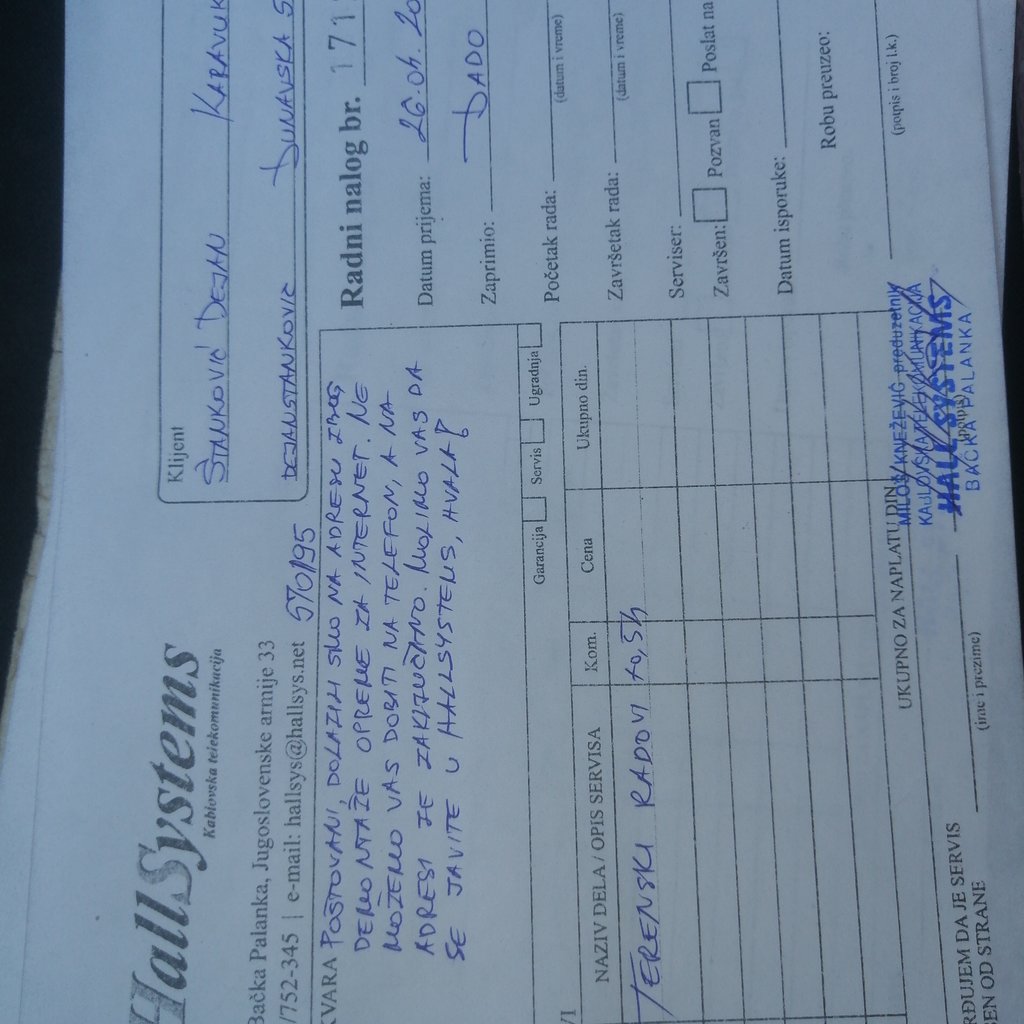 HallSystems
Kablovska telekomunikacija
Bačka Palanka, Jugoslovenske armije 33
/752-345 | e-mail: hallsys@hallsys.net 570195
Klijent
STANKOVIĆ DEJAN KARAVUK
DEJANSTANKOVIC DUNAVSKA 5
KVARA POŠTOVANI, DOLAZILI SMO NA ADRESU ZBOG
DEMONTAŽE OPREME ZA INTERNET. NE
MOŽEMO VAS DOBITI NA TELEFON, A NA
ADRESI JE ZAKLJUČANO. MOLIMO VAS DA
SE JAVITE U HALLSYSTEMS, HVALA!
Garancija Servis Ugradnja
Radni nalog br. 171
Datum prijema: 26.04.20
Zaprimio: DADO
Početak rada:
(datum i vreme)
Završetak rada:
(datum i vreme)
Serviser:
Završen: Pozvan Poslat na
Datum isporuke:
Robu preuzeo:
(potpis i broj l.k.)
VI
NAZIV DELA / OPIS SERVISA Kom. Cena Ukupno din.
TERENSKI RADOVI
UKUPNO ZA NAPLATU DIN.
RĐUJEM DA JE SERVIS
EN OD STRANE
(ime i prezime)
(potpis)
MILOŠ KNEŽEVIĆ preduzetnik
KABLOVSKA TELEKOMUNIKACIJA
HALL SYSTEMS
BAČKA PALANKA